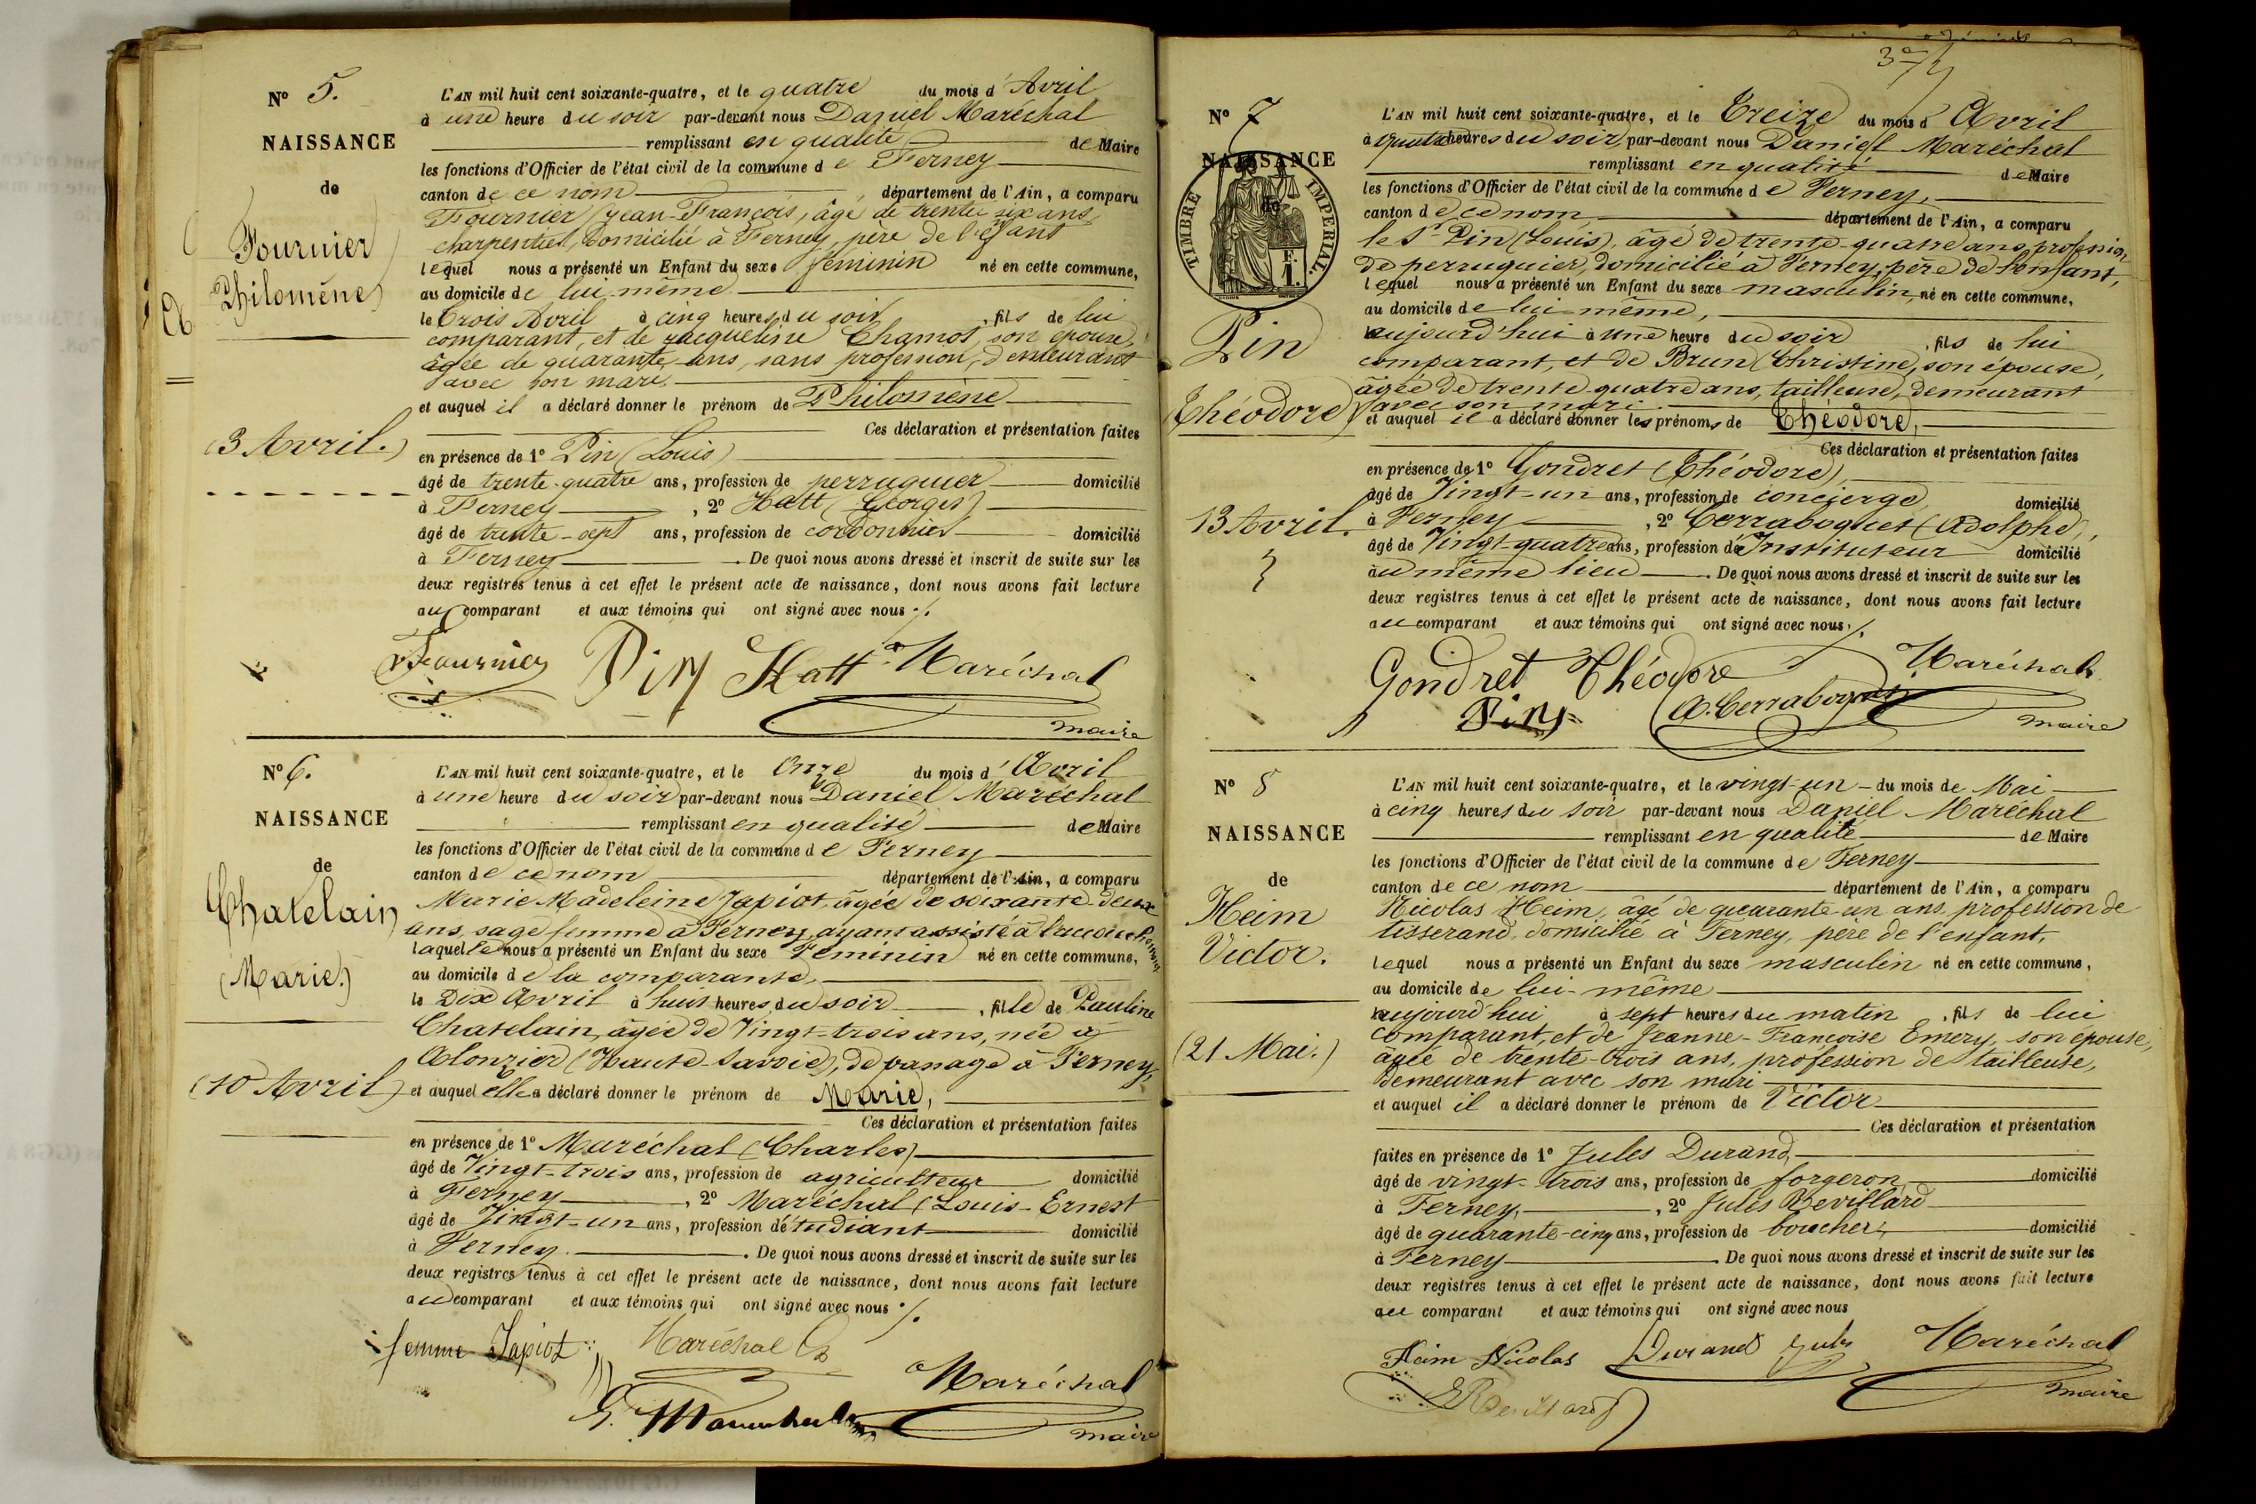 No 5.
NAISSANCE
de
Fournier
Philomène
(3 Avril.)
L'AN mil huit cent soixante-quatre, et le quatre du mois d'Avril
à une heure du soir par-devant nous Daniel Maréchal
remplissant en qualité de Maire
les fonctions d'Officier de l'état civil de la commune de Ferney
canton de ce nom département de l'Ain, a comparu
Fournier Jean-François, âgé de trente six ans,
charpentier, domicilié à Ferney, père de l'enfant
lequel nous a présenté un Enfant du sexe féminin né en cette commune,
au domicile de lui-même
le trois Avril à cinq heures du soir, fils de lui
comparant, et de Jacqueline Chamot, son épouse,
âgée de quarante ans, sans profession, demeurant
avec son mari.
et auquel il a déclaré donner le prénom de Philomène
Ces déclaration et présentation faites
en présence de 1º Pin (Louis)
âgé de trente-quatre ans, profession de perruquier domicilié
à Ferney, 2º Hatt (Georges)
âgé de trente-sept ans, profession de cordonnier domicilié
à Ferney. De quoi nous avons dressé et inscrit de suite sur les
deux registres tenus à cet effet le présent acte de naissance, dont nous avons fait lecture
au comparant et aux témoins qui ont signé avec nous ./.
Fournier Pin Hatt Maréchal
maire
No 6.
NAISSANCE
de
Chatelain
(Marie.)
(10 Avril)
L'AN mil huit cent soixante-quatre, et le Onze du mois d'Avril
à une heure du soir par-devant nous Daniel Maréchal
remplissant en qualité de Maire
les fonctions d'Officier de l'état civil de la commune de Ferney
canton de ce nom département de l'Ain, a comparu
Marie Madeleine Japiot, âgée de soixante-deux
ans, sage femme à Ferney, ayant assisté à l'accouchement
laquelle nous a présenté un Enfant du sexe Féminin né en cette commune,
au domicile de la comparante,
le Dix Avril à huit heures du soir, fille de Pauline
Chatelain, âgée de Vingt-trois ans, née à
Alonzier (Haute-Savoie), de passage à Ferney,
et auquel elle a déclaré donner le prénom de Marie,
Ces déclaration et présentation faites
en présence de 1º Maréchal (Charles)
âgé de Vingt-trois ans, profession de agriculteur domicilié
à Ferney, 2º Maréchal (Louis-Ernest
âgé de Vingt-un ans, profession d'étudiant domicilié
à Ferney. De quoi nous avons dressé et inscrit de suite sur les
deux registres tenus à cet effet le présent acte de naissance, dont nous avons fait lecture
au comparant et aux témoins qui ont signé avec nous ./.
femme Japiot Maréchal
Maréchal
maire
No 7
NAISSANCE
de
TIMBRE IMPERIAL.
F.
1.
Pin
Théodore
13 Avril.
L'AN mil huit cent soixante-quatre, et le Treize du mois d'Avril
à quatre heures du soir, par-devant nous Daniel Maréchal
remplissant en qualité de Maire
les fonctions d'Officier de l'état civil de la commune de Ferney,
canton de ce nom département de l'Ain, a comparu
le Sr Pin (Louis), âgé de trente-quatre ans, profession
de perruquier, domicilié à Ferney, père de l'enfant,
lequel nous a présenté un Enfant du sexe masculin, né en cette commune,
au domicile de lui-même,
aujourd'hui à une heure du soir, fils de lui
comparant, et de Brun (Christine), son épouse,
âgée de trente quatre ans, tailleuse, demeurant
avec son mari
et auquel il a déclaré donner les prénoms de Théodore,
Ces déclaration et présentation faites
en présence de 1º Gondret (Théodore),
âgé de Vingt-un ans, profession de concierge, domicilié
à Ferney, 2º Cerraboguet (Adolphe),
âgé de Vingt-quatre ans, profession d'Instituteur domicilié
au même lieu. De quoi nous avons dressé et inscrit de suite sur les
deux registres tenus à cet effet le présent acte de naissance, dont nous avons fait lecture
au comparant et aux témoins qui ont signé avec nous ./.
Gondret Théodore Maréchal
Pin maire
No 8
NAISSANCE
de
Heim
Victor.
(21 Mai.)
L'AN mil huit cent soixante-quatre, et le vingt-un du mois de Mai
à cinq heures du soir par-devant nous Daniel Maréchal
remplissant en qualité de Maire
les fonctions d'Officier de l'état civil de la commune de Ferney
canton de ce nom département de l'Ain, a comparu
Nicolas Heim, âgé de quarante-un ans, profession de
tisserand, domicilié à Ferney, père de l'enfant,
lequel nous a présenté un Enfant du sexe masculin né en cette commune,
au domicile de lui-même
aujourd'hui à sept heures du matin, fils de lui
comparant, et de Jeanne-Françoise Emery, son épouse,
âgée de trente-trois ans, profession de tailleuse,
demeurant avec son mari
et auquel il a déclaré donner le prénom de Victor
Ces déclaration et présentation
faites en présence de 1º Jules Durand,
âgé de vingt-trois ans, profession de forgeron, domicilié
à Ferney, 2º Jules Revillard
âgé de quarante-cinq ans, profession de boucher, domicilié
à Ferney. De quoi nous avons dressé et inscrit de suite sur les
deux registres tenus à cet effet le présent acte de naissance, dont nous avons fait lecture
au comparant et aux témoins qui ont signé avec nous
Heim Nicolas Durand Jules Maréchal
maire